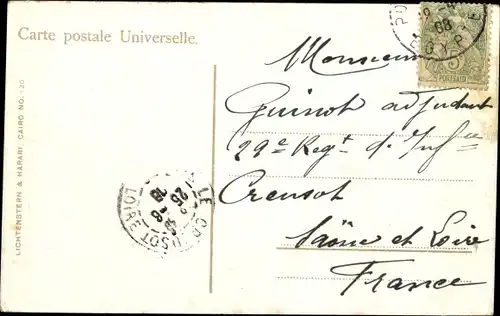 Carte postale Universelle.
LICHTENSTERN & HARARI, CAIRO NO. 120
Monsieur
Guinot adjudant
29e Regt d'Infie
Creusot
Saône et Loire
France
5
PORT-SAÏD
LE CREUSOT
LOIRE